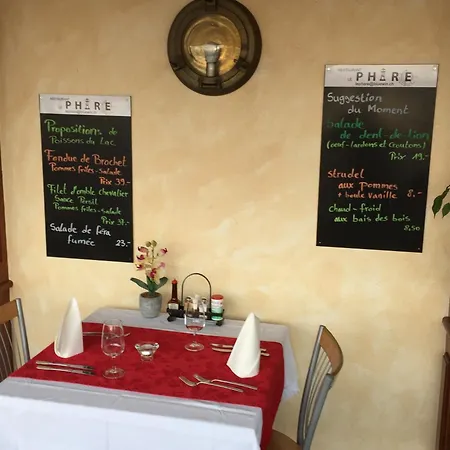 PHARE
Propositions de
Poissons du Lac
Fondue de Brochet
Pommes frites-Salade
Prix 39.-
Filet d'omble chevalier
Sauce Persil
Pommes frites-salade
Prix 37.-
Salade de féra
fumée 23.-
PHARE
Suggestion
du Moment
Salade
de dent-de-lion
(oeuf-lardons et Croutons)
Prix 19.-
Strudel
aux Pommes
+ boule Vanille 8.-
chaud-froid
aux bais des bois
8,50